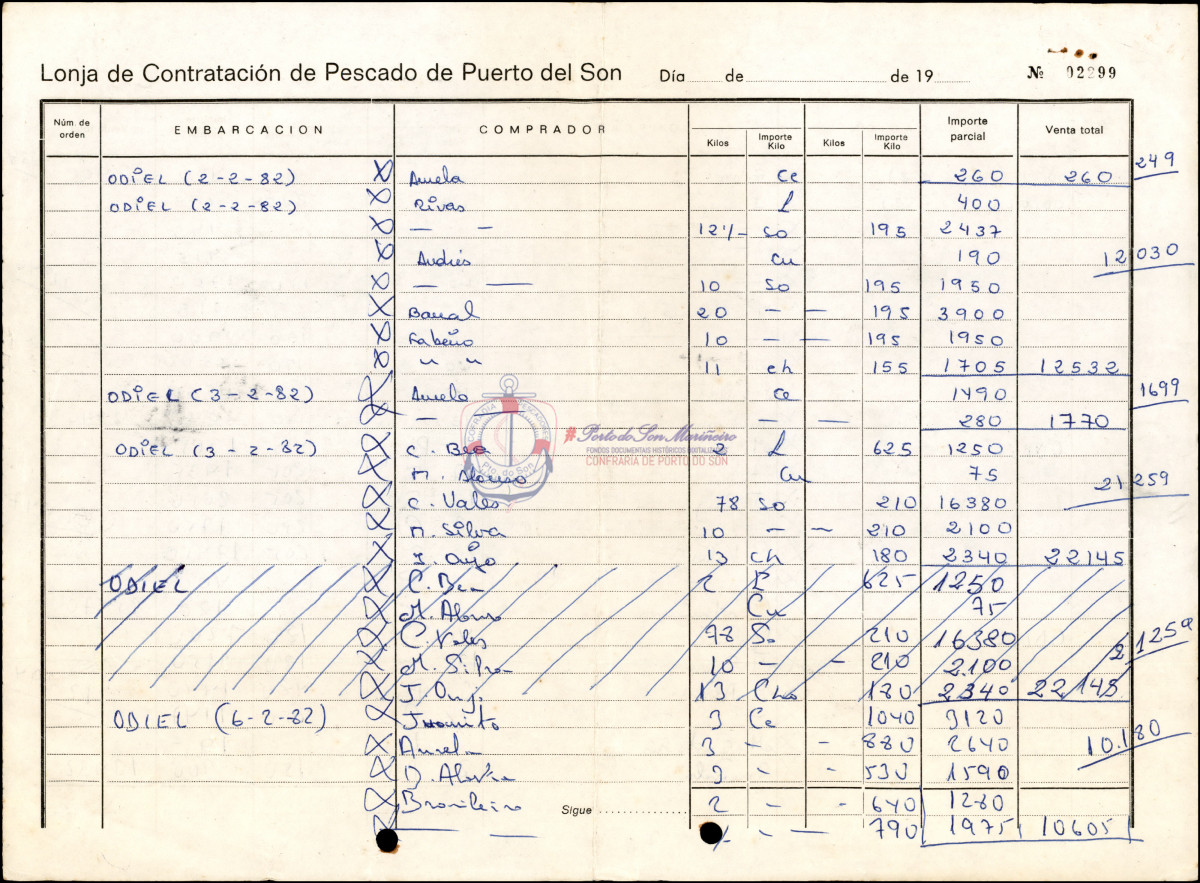 Lonja de Contratación de Pescado de Puerto del Son Día de de 19 Nº 02299
Núm. de orden EMBARCACION COMPRADOR Kilos Importe Kilo Kilos Importe Kilo Importe parcial Venta total
249
ODIEL (2-2-82) X Amela Ce 260 260
ODIEL (2-2-82) X Rivas L 400
X — — 12'/- So 195 2437
X Andrés Cu 190 12030
X — — 10 So 195 1950
X Barral 20 — — 195 3900
X 10 — — 195 1950
X " " 11 ch 155 1705 12532
1699
ODIEL (3-2-82) X Amelo Ce 1490
X — — — 280 1770
ODIEL (3-2-82) X C. Bea 2 L 625 1250
X M. Alonso Cu 75 21259
X C. Vales 78 So 210 16380
X M. Silva 10 — — 210 2100
X J. 13 Ch 180 2340 22145
ODIEL X C. Bea 2 L 625 1250
X M. Alonso Cu 75
X C Vales 78 So 210 16380 21259
X M. Silva 10 — — 210 2.100
X J. 13 Cho 180 2340 22145
ODIEL (6-2-82) X Juanito 3 Ce 1040 3120
X Amela 3 — — 880 2640 10.180
X D. 3 — — 530 1590
X Brasileiro Sigue 2 — — 640 1280
X — — — — 790 1975 10605
COFRADIA PESCADORES
Pto. do Son
#Porto do Son Mariñeiro
FONDOS DOCUMENTAIS HISTÓRICOS DIXITALIZADOS
CONFRARIA DE PORTO DO SON